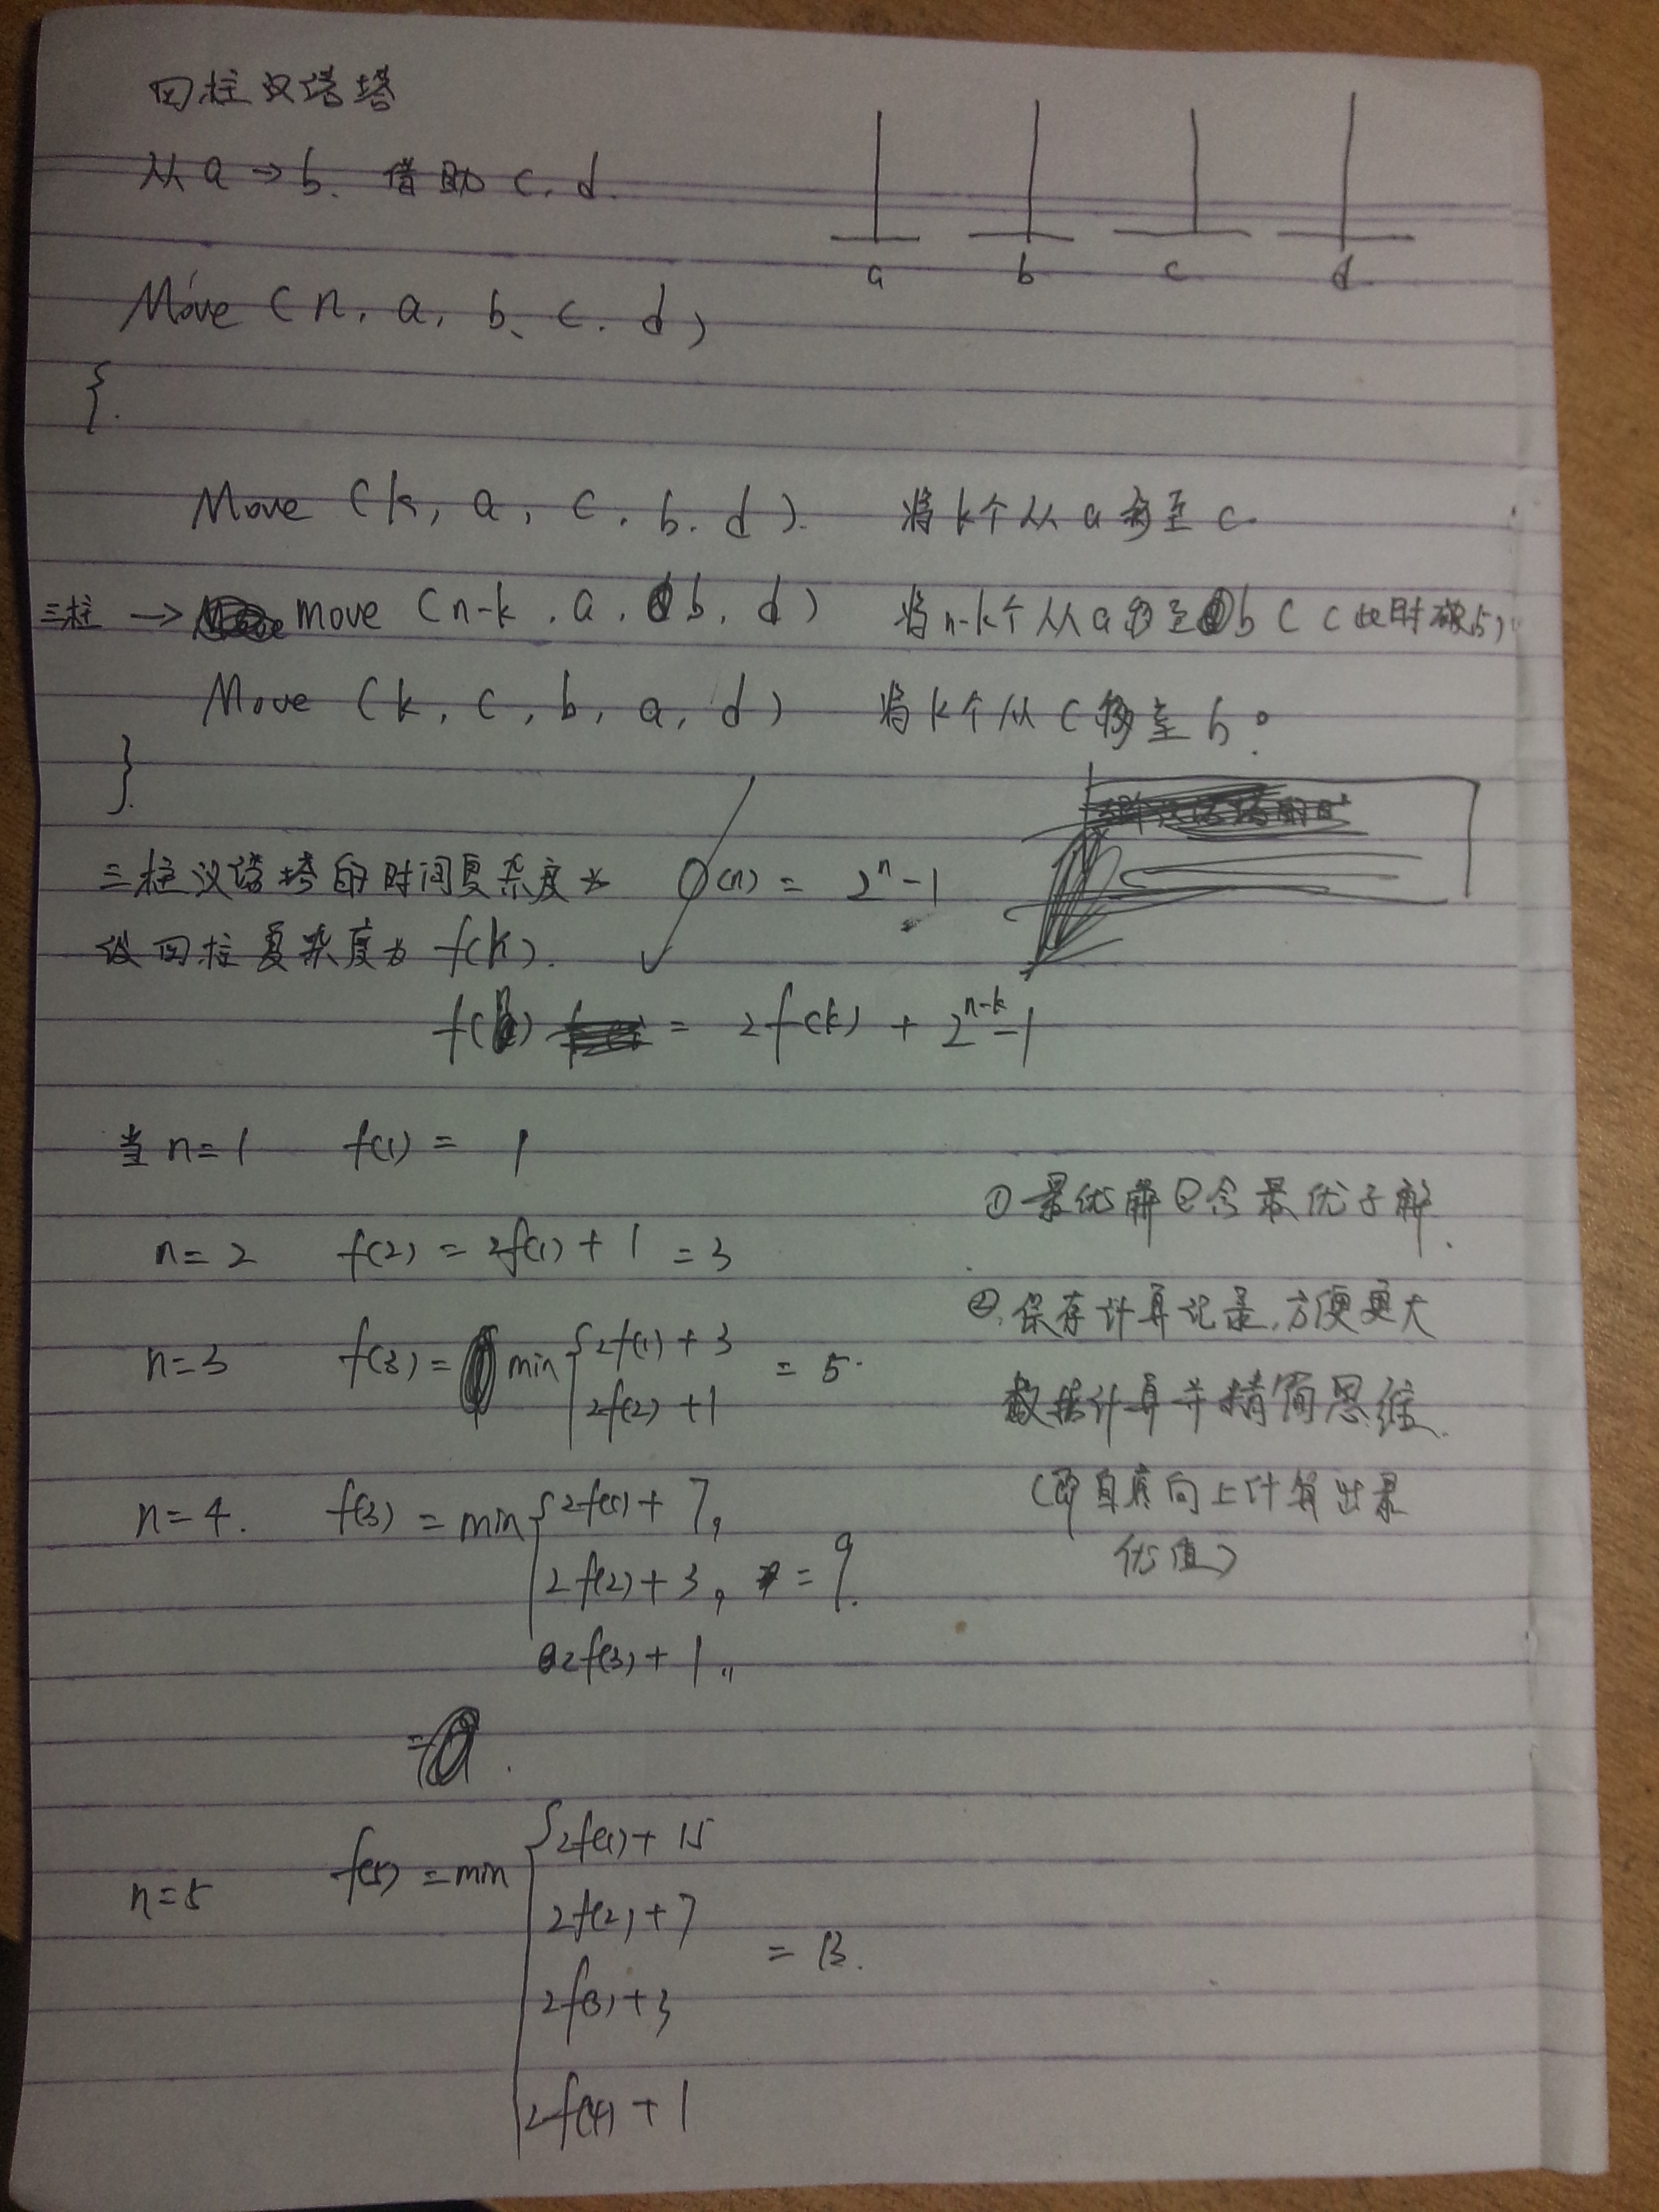 四柱汉诺塔
从 a → b. 借助 c, d.
a b c d
Move (n, a, b, c, d)
{
Move (k, a, c, b, d). 将k个从a移至c.
三柱 → move (n-k, a, b, d) 将n-k个从a移至b (c此时被占)
Move (k, c, b, a, d) 将k个从c移至b。
}
三柱汉诺塔的时间复杂度为 O(n) = 2ⁿ-1
设四柱复杂度为 f(k).
= 2f(k) + 2ⁿ⁻ᵏ-1
当 n=1 f(1) = 1
n=2 f(2) = 2f(1) + 1 = 3
n=3 f(3) = min { 2f(1) + 3
2f(2) + 1 = 5.
n=4. f(3) = min { 2f(1) + 7,
2f(2) + 3, = 9.
2f(3) + 1,,
=
n=5 f(5) = min { 2f(1) + 15
2f(2) + 7
2f(3) + 3
2f(4) + 1 = 13.
① 最优解包含最优子解.
②. 保存计算记录,方便更大
数据计算并精简思维.
(即自底向上计算出最
优值)